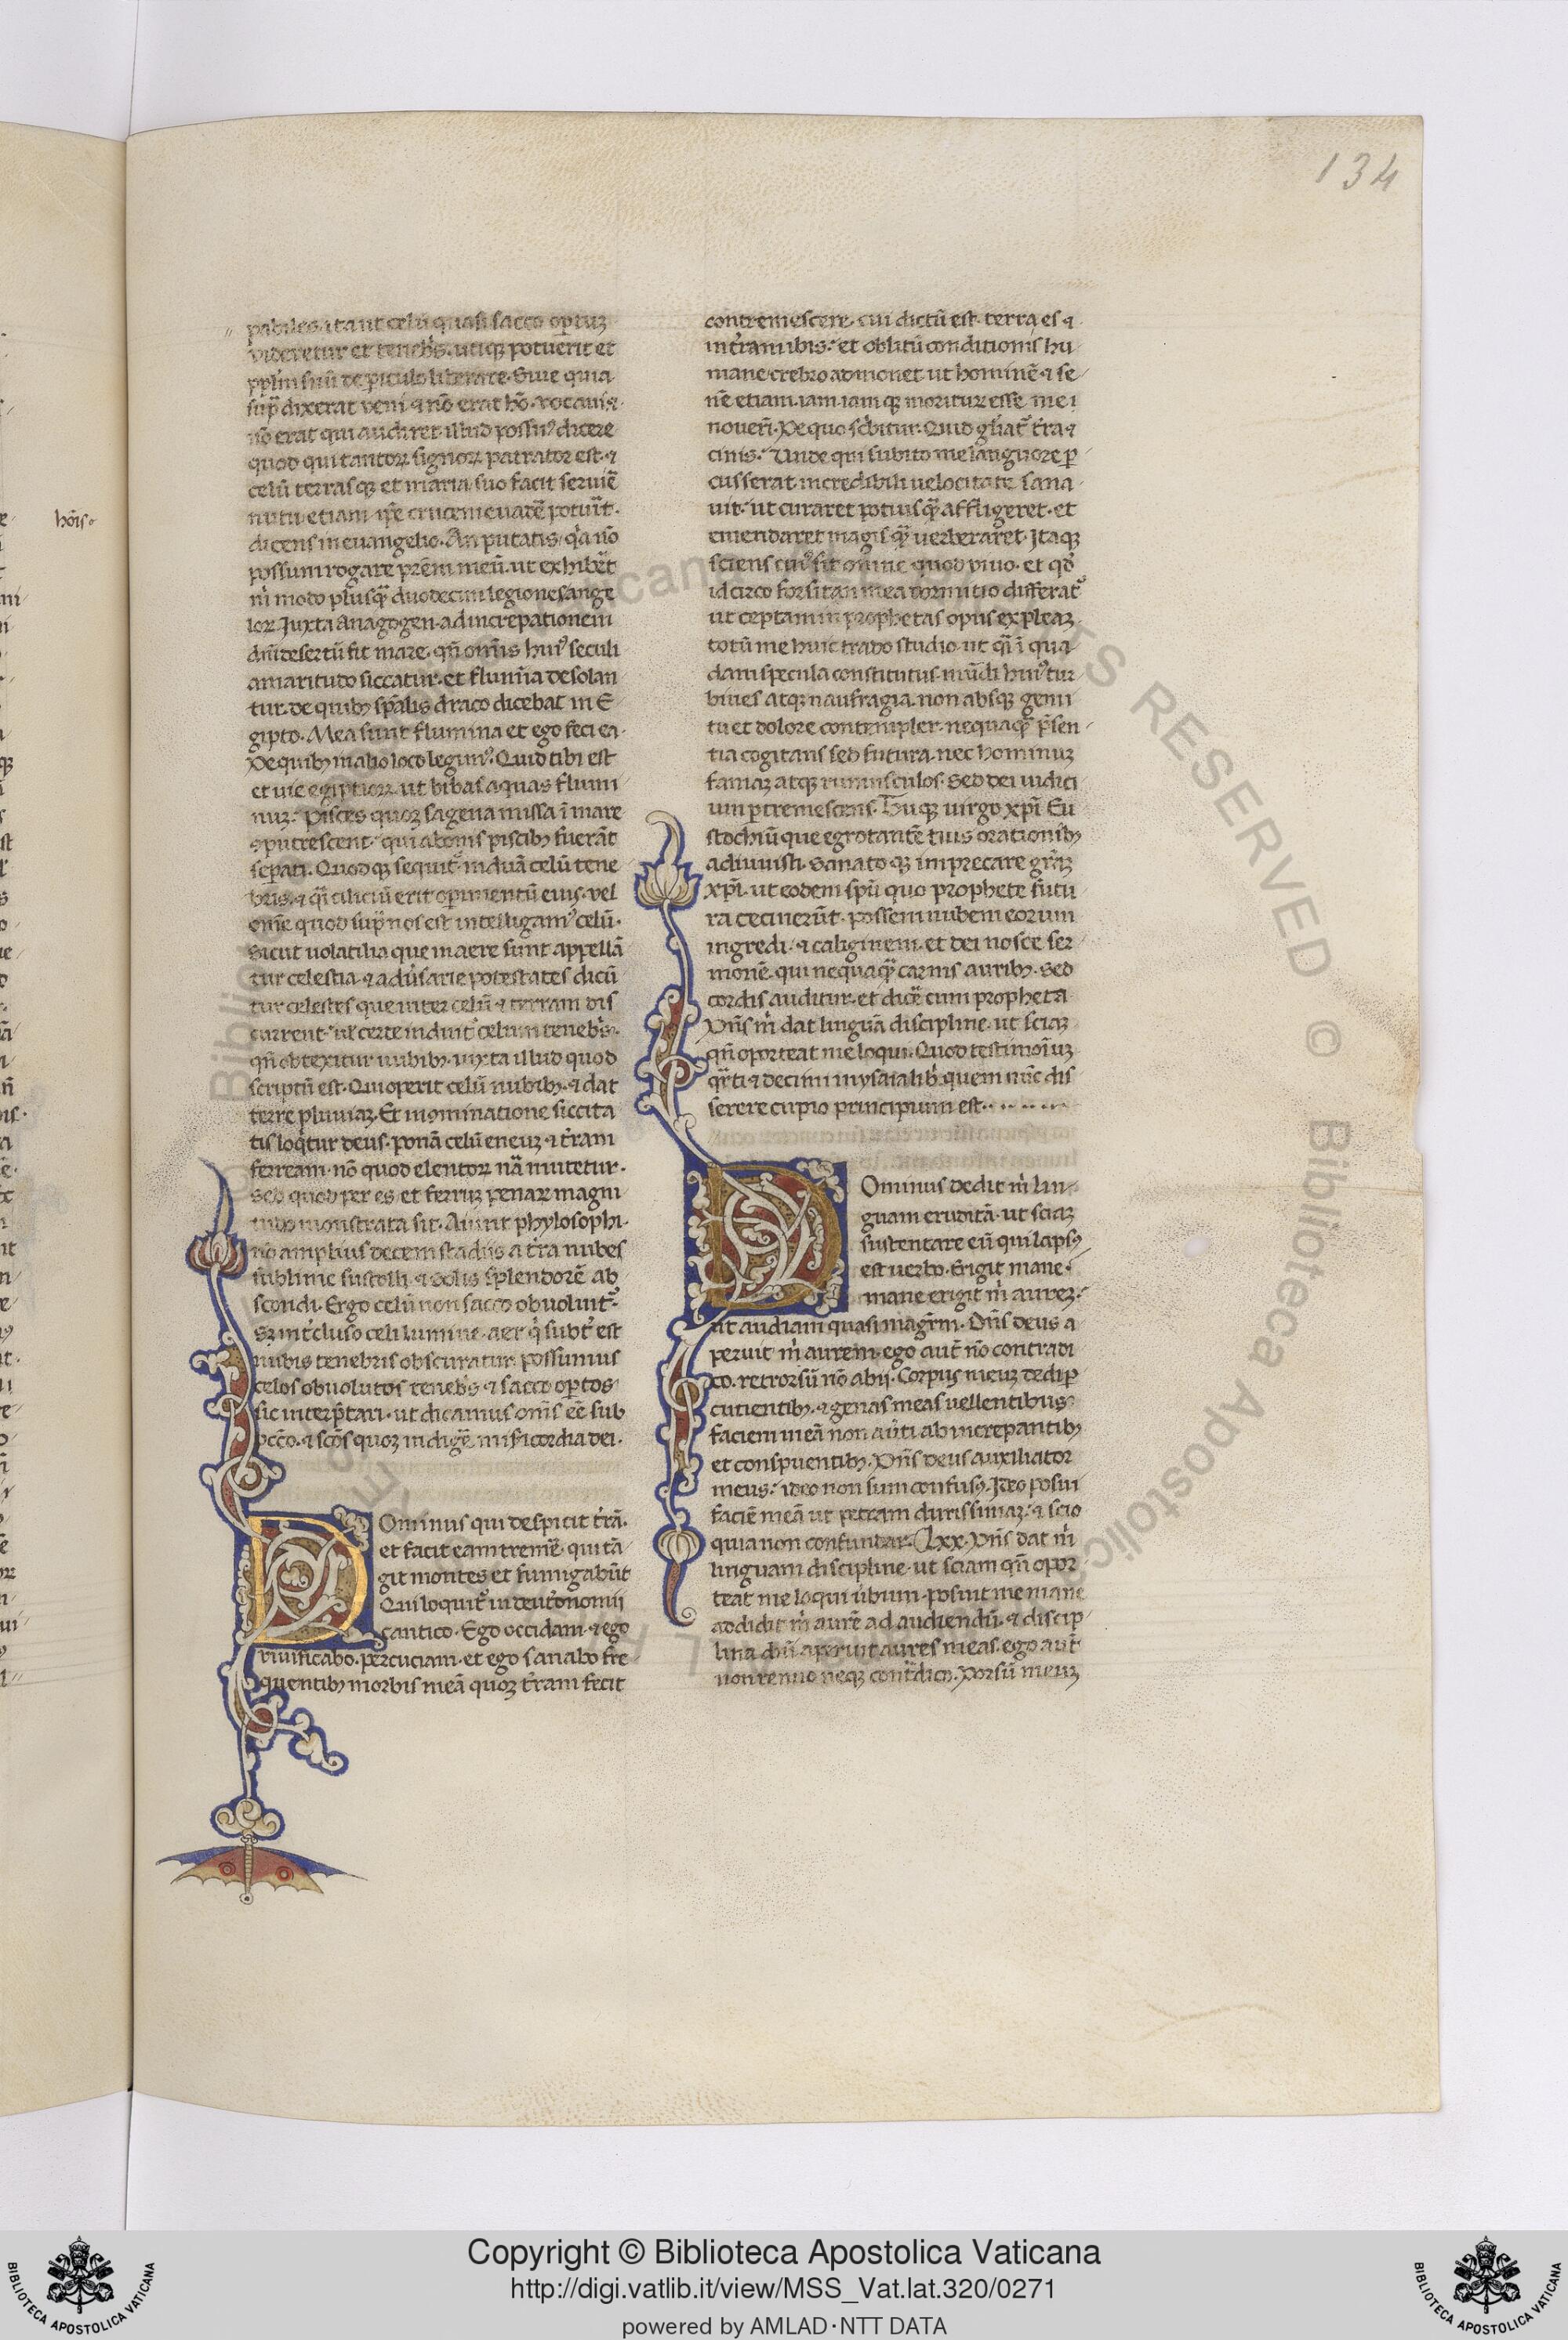 134
pabiles. ita ut celū quasi sacco optuꝫ
videretur et tenebris. utiqꝫ potuerit et
pplm suū de piculo liberare. Sive quia
sup̄ dixerat veni ⁊ nō erat hō. vocavi ⁊
nō erat qui audiret. illud possumꝰ dicere
quod qui tantoꝝ signoꝝ patrator est. ⁊
celū terrasqꝫ et maria suo facit servire
nutu. etiam ip̄e crucem evadē potuit.
dicens in evangelio. An putatis. qa nō
possum rogare prēm meū. ut exhibeat
m̄ modo plusqꝫ duodecim legiones ange
loꝝ. Juxta anagogen. ad increpationem
dn̄i desertū fit mare. qn̄ omīs huiꝰ seculi
amaritudo siccatur. et flumīa desolan
tur. de quibꝫ spālis draco dicebat in E
gipto. Mea sunt flumina et ego feci ea.
De quibꝫ in alio loco legimꝰ. Quid tibi est
et vie egiptioꝝ ut bibas aquas flumi
nuꝫ. Pisces quoqꝫ sagena missa ī mare
ꝯputrescent. qui a bonis piscibꝫ fuerāt
sepati. Quodqꝫ sequit̄. induā celū tene
bris. ⁊ qͣi ciliciū erit opimentū eius. vel
om̄e quod sup̄ nos est intelligamꝰ celū.
sicut volatilia que in aere sunt appellā
tur celestia. ⁊ adūsarie potestates dicū
tur celestes que inter celū ⁊ terram dis
currunt. ul certe induit̄ celum tenebris.
qn̄ obtexitur nubibꝫ. iuxta illud quod
scriptū est. Qui operit celū nubibꝫ. ⁊ dat
terre pluviaꝫ. Et in ominatione siccita
tis loqtur deus. ponā celū eneuꝫ ⁊ tr̄am
ferream. nō quod elentoꝝ nā mutetur.
sed quod per es et ferruꝫ penaꝝ magni
tudo monstrata sit. Aiunt phylosophi.
nō amplius decem stadiis a tr̄a nubes
sublime sustolli. ⁊ solis splendorē ab
scondi. Ergo celū non sacco obvolvit̄.
sꝫ int̄cluso celi lumine. aer q̄ subt̄ est
nubis tenebris obscuratur. possumus
celos obvolutos tenebris ⁊ sacco optos
sic interp̄tari. ut dicamus om̄s eē sub
pctō. ⁊ scōs quoqꝫ indigē misericordia dei.
Ominus qui despicit tr̄ā.
et facit eam tremē. qui tā
git montes et fumigabūt
Qui loquit̄ in deut̄onomii
cantico. Ego occidam. ⁊ ego
vivificabo. percuciam. et ego sanabo fre
quentibꝫ morbis meā quoqꝫ tr̄am fecit
contremescere. cui dictū est. terra es ⁊
in tr̄am ibis. et oblitū conditionis hu
mane crebro admonet. ut hominē ⁊ se
nē etiam. iam. iamqꝫ morituꝝ esse me
noverī. De quo scribitur. Quid gliat̄ tr̄a ⁊
cinis. Unde qui subito me languore p
cusserat incredibili velocitate sana
vit. ut curaret potiusqꝫ affligeret. et
emendaret magisqꝫ verberaret. Itaqꝫ
sciens cuiꝰ sit om̄e quod vivo. et qd̄
idcirco forsitan mea dormitio differat̄
ut ceptam in prophetas opus expleaꝫ.
totū me huic trado studio. ut qͣi ī qua
dam specula constitutus. mūdi huiꝰ tur
bines atqꝫ naufragia. non absqꝫ gemi
tu et dolore contempler. nequaqꝫ p̄sen
tia cogitans sed futura. nec hominuꝫ
famaꝫ atqꝫ rumusculos. sed dei iudici
um ptremescens. Tuqꝫ virgo xp̄i Eu
stochiū que egrotantē tuis orationibꝫ
adiuvisti. sanatoqꝫ imprecare grāꝫ
xp̄i. ut eodem sp̄u quo prophete futu
ra cecinerūt. possem nubem eorum
ingredi. ⁊ caliginem. et dei nosce ser
monē. qui nequaqꝫ carnis auribꝫ. sed
cordis auditur. et dicē cum propheta
Dn̄s m̄ dat linguā discipline. ut sciaꝫ
qn̄ oporteat me loqui. Quod testimoniuꝫ
qrti ⁊ decimi in ysaia lib. quem nūc dis
serere cupio principium est
Ominus dedit m̄ lin
guam eruditā. ut sciaꝫ
sustentare eū qui lapsꝰ
est verbo. Erigit mane.
mane erigit m̄ aureꝫ.
ut audiam quasi magr̄m. Dn̄s deus a
peruit m̄ aurem. ego aut̄ nō contradi
co. retrorsū nō abij. Corpus meuꝫ dedi p
cutientibꝫ. ⁊ genas meas vellentibus
faciem meā non av̄ti ab increpantibꝫ
et conspuentibꝫ. Dn̄s deus auxiliator
meus. ideo non sum confusꝰ. Ideo posui
faciē meā ut petram durissimaꝫ. ⁊ scio
quia non confundar. Lxx. Dn̄s dat m̄
linguam discipline. ut sciam qn̄ opor
teat me loqui v̄bum. posuit me mane
addidit m̄ aurē ad audiendū. ⁊ discip
lina dn̄i aperuit aures meas. ego aut̄
non renuo neqꝫ cont̄dico. Dorsū meuꝫ
hōis.
Copyright © Biblioteca Apostolica Vaticana
http://digi.vatlib.it/view/MSS_Vat.lat.320/0271
powered by AMLAD·NTT DATA
BIBLIOTECA APOSTOLICA VATICANA
BIBLIOTECA APOSTOLICA VATICANA